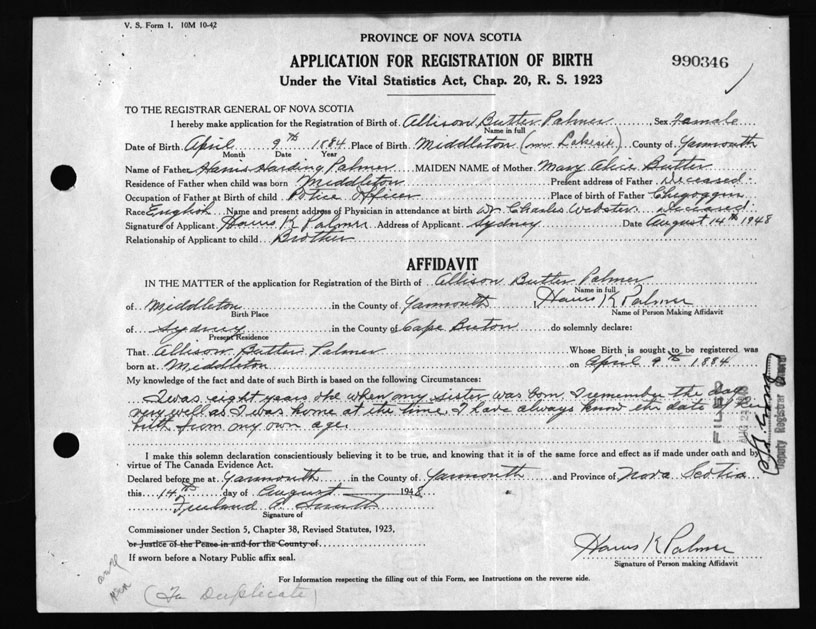 V. S. Form 1. 10M 10-42
PROVINCE OF NOVA SCOTIA
APPLICATION FOR REGISTRATION OF BIRTH
990346
Under the Vital Statistics Act, Chap. 20, R. S. 1923
TO THE REGISTRAR GENERAL OF NOVA SCOTIA
I hereby make application for the Registration of Birth of Allison Butler Palmer Sex Female
Name in full
Date of Birth April 9th 1884 Place of Birth Middleton County of Yarmouth
Month Date Year
Name of Father Harris Harding Palmer MAIDEN NAME of Mother Mary Alice Butler
Residence of Father when child was born Middleton Present address of Father deceased
Occupation of Father at Birth of child Police Officer Place of birth of Father Chegoggin
Race English Name and present address of Physician in attendance at birth Dr Charles Webster. deceased
Signature of Applicant Harris K Palmer Address of Applicant Sydney Date August 14th 1948
Relationship of Applicant to child Brother
AFFIDAVIT
IN THE MATTER of the application for Registration of the Birth of Allison Butler Palmer
Name in full
of Middleton in the County of Yarmouth I, Harris K Palmer
Birth Place Name of Person Making Affidavit
of Sydney in the County of Cape Breton do solemnly declare:
Present Residence
That Allison Butler Palmer Whose Birth is sought to be registered was
born at Middleston on April 9th 1884
My knowledge of the fact and date of such Birth is based on the following Circumstances:
I was eight years old when my sister was born I remember the day
very well as I was home at the time. I have always know the date of her
birth from my own age.
FILED
Deputy Registrar General
I make this solemn declaration conscientiously believing it to be true, and knowing that it is of the same force and effect as if made under oath and by
virtue of The Canada Evidence Act.
Declared before me at Yarmouth in the County of Yarmouth and Province of Nova Scotia
this 14th day of August 1948
Signature of
Commissioner under Section 5, Chapter 38, Revised Statutes, 1923,
or Justice of the Peace in and for the County of
Harris K Palmer
If sworn before a Notary Public affix seal.
Signature of Person making Affidavit
For Information respecting the filling out of this Form, see Instructions on the reverse side.
(In Duplicate)